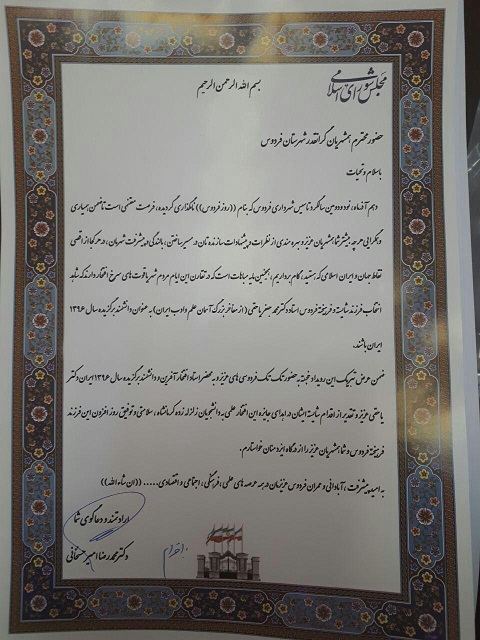 مجلس شورای اسلامی
بسم الله الرحمن الرحیم
حضور محترم همشهریان گرانقدر شهرستان فردوس
باسلام و تحیات
دهم آذرماه، نود و دومین سالگرد تاسیس شهرداری فردوس که بنام ((روز فردوس)) نامگذاری گردیده، فرصت مغتنمی است تا ضمن همیاری
و همگرایی هرچه بیشتر شما همشهریان عزیز و بهره مندی از نظرات و پیشنهادات سازنده تان در مسیر ساختن، بالندگی و پیشرفت شهرمان، در هر کجا از اقصی
نقاط جهان و ایران اسلامی که هستید، گام برداریم، همچنین مایه مباهات است که در تقارن این ایام مردم شهر یاقوت های سرخ افتخار دارند که شاهد
انتخاب فرزند شایسته و فرهیخته فردوس استاد دکتر محمد جعفر یاحقی (از مفاخر بزرگ آسمان علم و ادب ایران) به عنوان دانشمند برگزیده سال ۱۳۹۶
ایران باشند.
ضمن عرض تبریک این رویداد خجسته به حضور تک تک فردوسی های عزیز و به محضر استاد افتخار آفرین و دانشمند برگزیده سال ۱۳۹۶ ایران دکتر
یاحقی عزیز و تقدیر از اقدام شایسته ایشان در اهدای جایزه این افتخار علمی به دانشجویان زلزله زده کرمانشاه، سلامتی و توفیق روز افزون این فرزند
فرهیخته فردوس و شما همشهریان عزیز را از درگاه ایزد منان خواستارم.
به امید پیشرفت، آبادانی و عمران فردوس عزیزمان در همه عرصه های علمی، فرهنگی، اجتماعی و اقتصادی..... ((ان شاء الله))
ارادتمند و دعاگوی شما
دکتر محمد رضا امیرحسنخانی